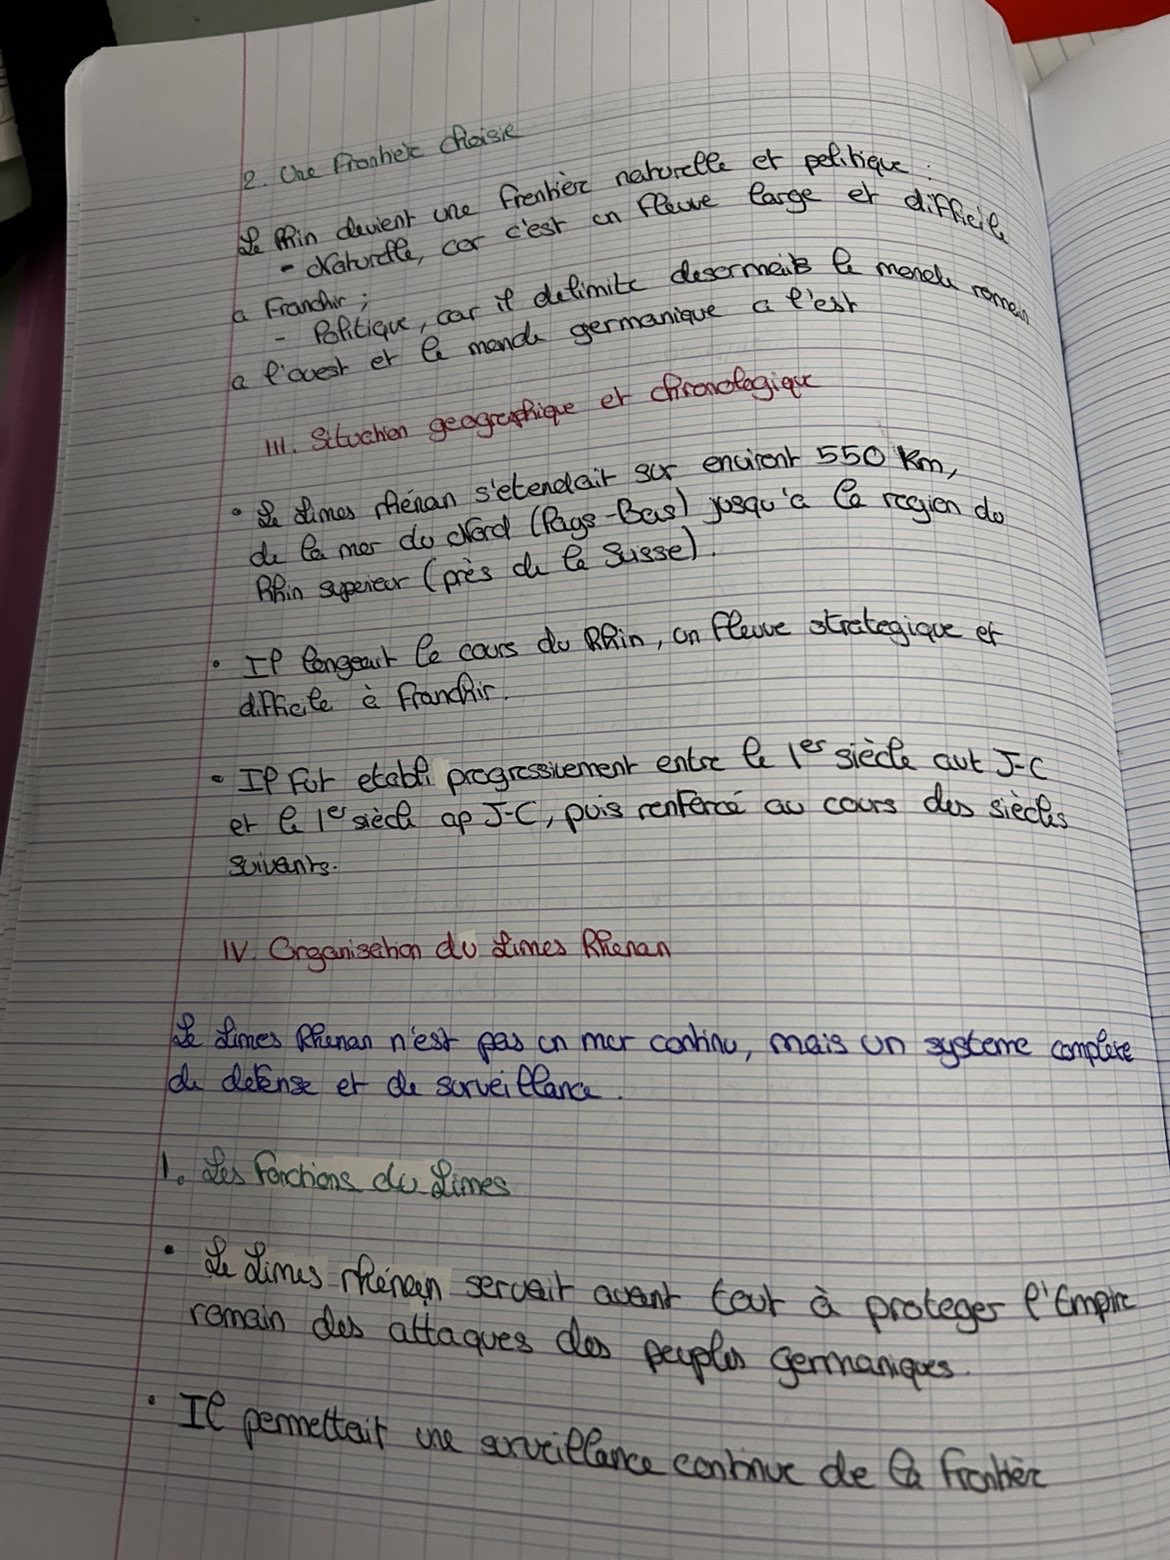 2. Une frontière choisie
Le Rhin devient une frontière naturelle et politique :
- Naturelle, car c'est un fleuve large et difficile
a franchir ;
- Politique, car il delimite desormais le monde romain
a l'ouest et le monde germanique a l'est
III. Situation geographique et chronologique
• Le Limes rhénan s'etendait sur environt 550 km,
de la mer du Nord (Pays-Bas) jusqu'à la region du
Rhin superieur (près de la Suisse).
• Il longeait le cours du Rhin, un fleuve strategique et
difficile à franchir.
• Il fut etabli progressivement entre le 1er siècle avt J-C
et le 1er siècle ap J-C, puis renforcé au cours des siècles
suivants.
IV. Organisation du Limes Rhenan
Le Limes Rhenan n'est pas un mur continu, mais un systeme complexe
de defense et de surveillance.
1. Les fonctions du Limes
• Le Limes rhénan servait avant tout à proteger l'Empire
romain des attaques des peuples germaniques.
• Il permettait une surveillance continue de la frontière